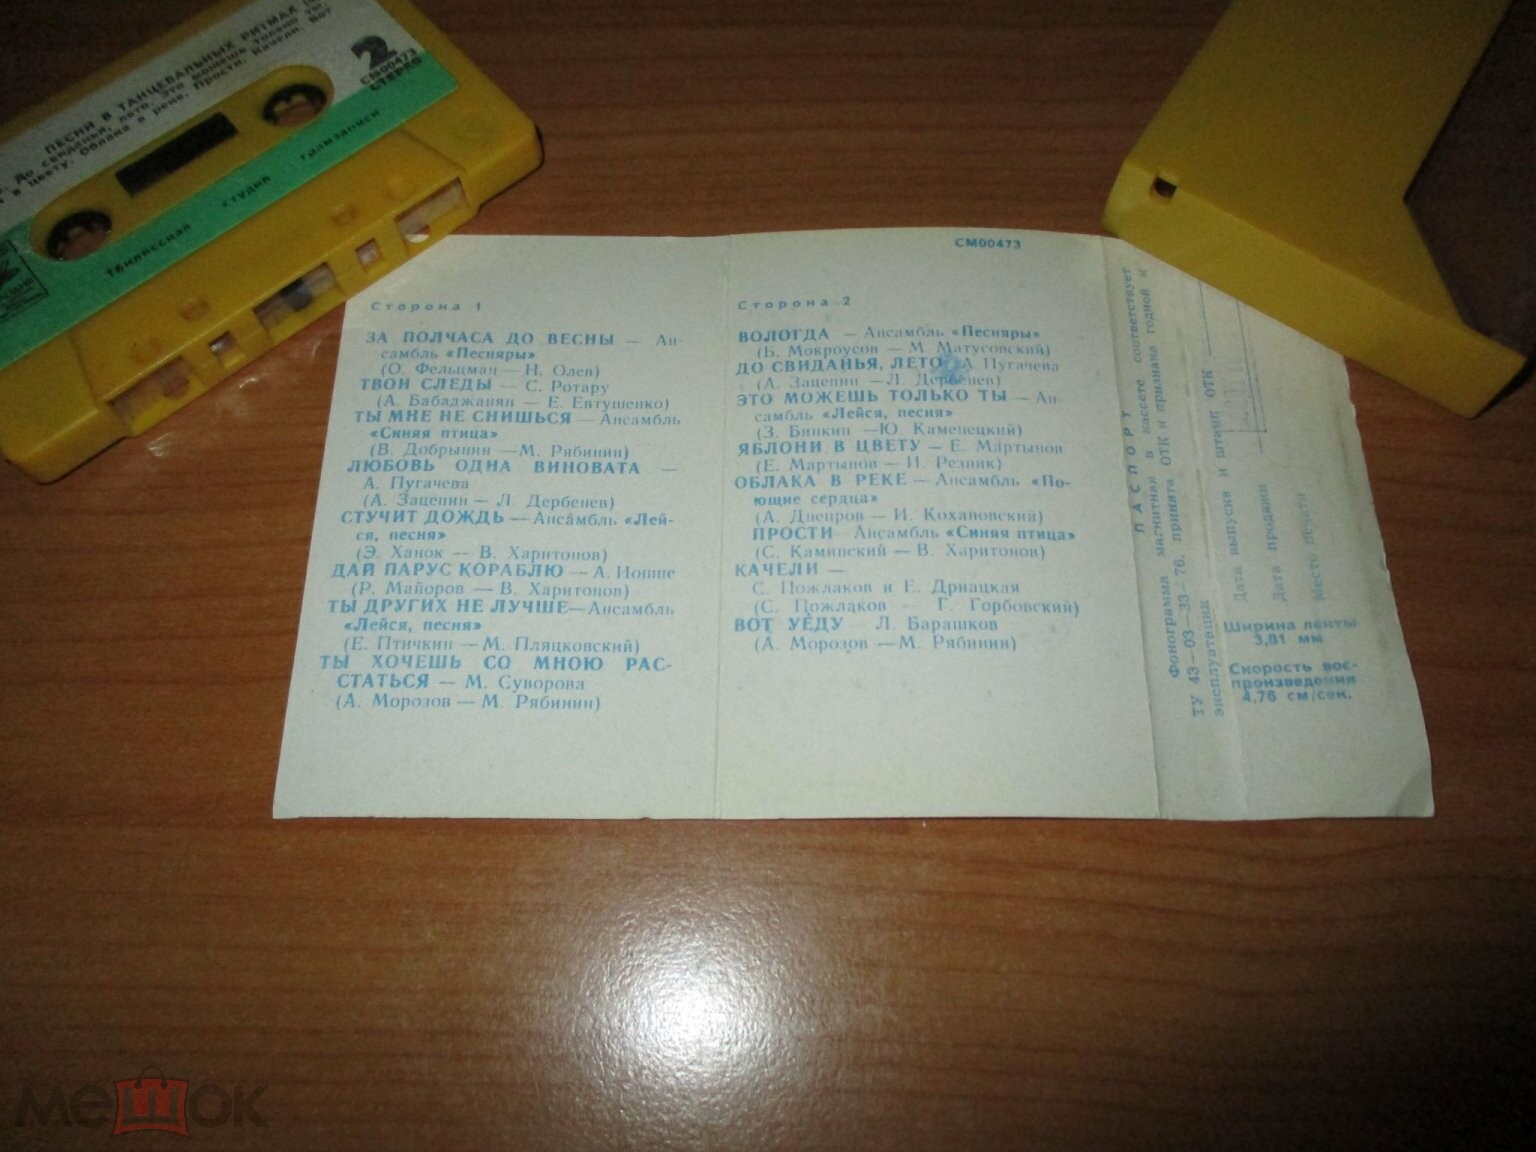 ПЕСНИ В ТАНЦЕВАЛЬНЫХ РИТМАХ
До свиданья, лето. Это можешь только ты
в цвету. Облака в реке. Прости. Качели. Вот
2
СМ00473
СТЕРЕО
Тбилисская студия грамзаписи
СМ00473
Сторона 1
ЗА ПОЛЧАСА ДО ВЕСНЫ — Ан-
самбль «Песняры»
(О. Фельцман — Н. Олев)
ТВОИ СЛЕДЫ — С. Ротару
(А. Бабаджанян — Е. Евтушенко)
ТЫ МНЕ НЕ СНИШЬСЯ — Ансамбль
«Синяя птица»
(В. Добрынин — М. Рябинин)
ЛЮБОВЬ ОДНА ВИНОВАТА —
А. Пугачева
(А. Зацепин — Л. Дербенев)
СТУЧИТ ДОЖДЬ — Ансамбль «Лей-
ся, песня»
(Э. Ханок — В. Харитонов)
ДАЙ ПАРУС КОРАБЛЮ — А. Иошпе
(Р. Майоров — В. Харитонов)
ТЫ ДРУГИХ НЕ ЛУЧШЕ — Ансамбль
«Лейся, песня»
(Е. Птичкин — М. Пляцковский)
ТЫ ХОЧЕШЬ СО МНОЮ РАС-
СТАТЬСЯ — М. Суворова
(А. Морозов — М. Рябинин)
Сторона 2
ВОЛОГДА — Ансамбль «Песняры»
(Б. Мокроусов — М. Матусовский)
ДО СВИДАНЬЯ, ЛЕТО А. Пугачева
(А. Зацепин — Л. Дербенев)
ЭТО МОЖЕШЬ ТОЛЬКО ТЫ — Ан-
самбль «Лейся, песня»
(З. Бинкин — Ю. Каменецкий)
ЯБЛОНИ В ЦВЕТУ — Е. Мартынов
(Е. Мартынов — И. Резник)
ОБЛАКА В РЕКЕ — Ансамбль «По-
ющие сердца»
(А. Днепров — И. Кохановский)
ПРОСТИ — Ансамбль «Синяя птица»
(С. Каминский — В. Харитонов)
КАЧЕЛИ —
С. Пожлаков и Е. Дриацкая
(С. Пожлаков — Г. Горбовский)
ВОТ УЕДУ — Л. Барашков
(А. Морозов — М. Рябинин)
ПАСПОРТ
Фонограмма магнитная в кассете соответствует
ТУ 43—03—33—76, принята ОТК и признана годной к
эксплуатации
Дата выпуска и штамп ОТК
Дата продажи
Место печати
Ширина ленты
3,81 мм
Скорость вос-
произведения
4,76 см/сек.
мешок